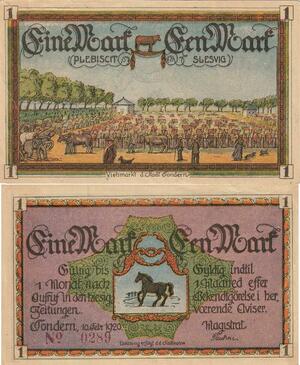 1 1
Eine Mark Een Mark
PLEBISCIT SLESVIG
Viehmarkt d. Stadt Tondern
1 1
1 1
Eine Mark Een Mark
Gültig bis Gyldig indtil
1 Monat nach 1 Maaned efter
Aufruf in den hiesig. Bekendtgörelse i her
Zeitungen. værende Aviser.
Tondern, 10. Febr. 1920. Magistrat
No 0289
1 1